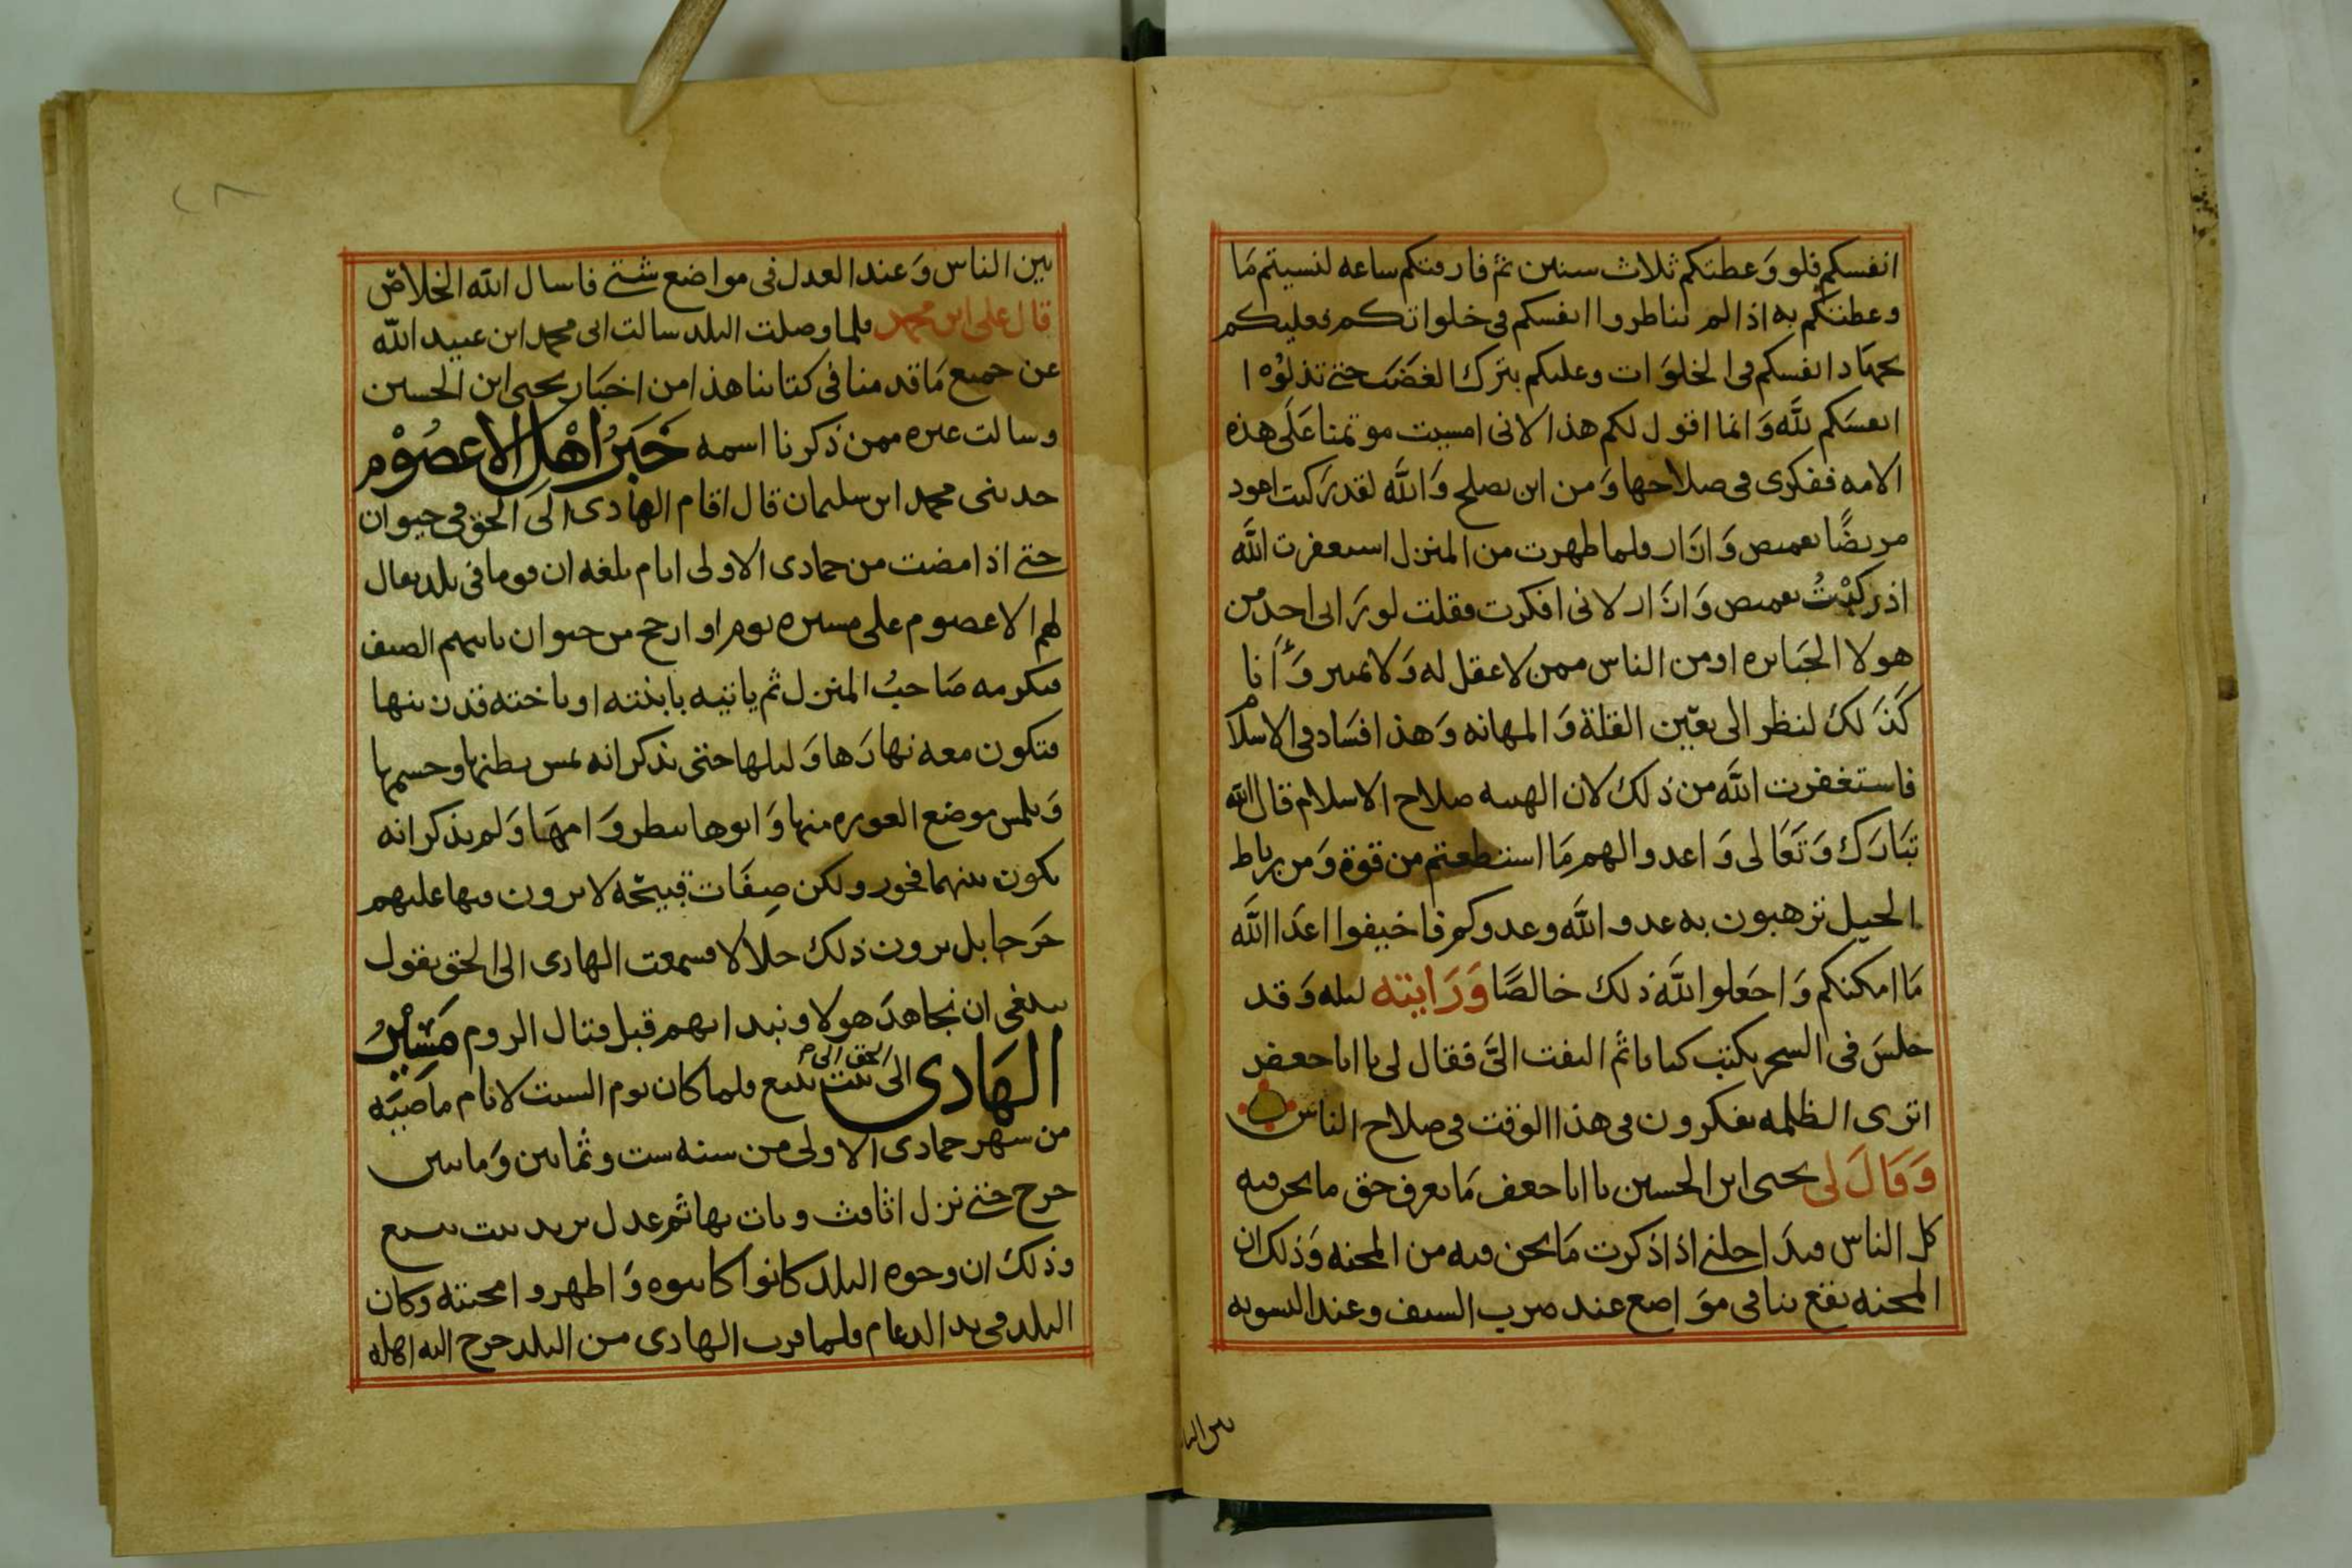 انفسكم فلو وعظتكم ثلاث سنين ثم فارقتكم ساعه لنسيتم مَا
وعظتكم به اذا لم تناظروا انفسكم فى خلواتكم فعليكم
بجهَاد انفسكم فى الخلوَات وعليكم بترك الغضَب حتى تذلوْا
انفسَكم للَّه وَانما اقول لكم هذا لانى امسيت موتمنا عَلَى هذه
الامه ففكرى فى صلاحها وَمن اين تصلح وَاللَّه لقد رَكبت اعود
مريضًا بقميص وَازَار فلما ظهرت من المنزل استغفرت اللَّه
اذ ركبْتُ بقميص وَازَار لانى افكرت فقلت لو رَانى احد من
هولا الجبَابره او من الناس ممن لا عقل له وَلا تمييز وَانا
كَذَلك لنظر الى بعين القلة وَالمهانه وَهذا فسَاد فى الاسلام
فاستغفرت اللَّه من ذلك لان الهيبه صلاح الاسلام قال اللَّه
تبَارَك وَتَعَالى وَاعدوا لهم مَا استطعتم من قوة وَمن رباط
الخيل ترهبون به عدو اللَّه وعدوكم فاخيفوا اعدَا اللَّه
مَا امكنكم وَاجعَلوا للَّه ذلك خالصًا وَرَايته ليله وَقد
جلسَ فى السحر يكتب كتابا ثم التفت الىَّ فقال لى يا ابا جعفر
اترى الظلمه يفكرون فى هذا الوقت فى صلاح الناس
وَقَالَ لى يحيى ابن الحسين يا ابا جعفر مَا يعرف حق ما نحن فيه
كل الناس فيدَاخلنى اذا ذكرت مَا نحن فيه من المحنه وَذلك ان
المحنه تقع بنا فى موَاضع عند ضرب السيف وعند التسويه
بين الناس وَعند العدل فى مواضع شتى فاسال اللَّه الخلاصَ
قال على ابن محمد فلما وصلت البلد سالت ابى محمد ابن عبيد اللَّه
عن جميع مَا قدمنا فى كتابنا هذا من اخبَار يحيى ابن الحسين
وسالت غيره ممن ذكرنا اسمه خَبَرُ اهْل الاعصُوْم
حدثنى محمد ابن سليمان قال اقام الهَادى الَى الحق فى خيوان
حتى اذا مضت من جمادى الاولى ايام بلغه ان قوما فى بلد يقال
لهم الاعصوم على مسيره يوم او ارجح من خيوان ياتيهم الضيف
فيكرمه صَاحبُ المنزل ثم ياتيه بابنته او باخته قد زينها
فتكون معه نهارَهَا وَليلها حتى يذكر انه يمس بطنها وجسمها
وَيلمس موضع العوره منها وَابوها ينظر وَامهَا وَلم يذكر انه
يكون بينهما فجور ولكن صِفَات قبيحَه لا يرون فيها عليهم
حَرجا بل يرون ذلك حلَالا فسمعت الهادى الى الحق يقول
ينبغى ان نجاهدَ هولا ونبدا بهم قبل قتال الروم مَسَيْرُ
الهَادى الى الحق الى بيت بيع فلما كان يوم السبت لايام مَاضيَه
من شهر جمادى الاولى من سنه ست وثمانين وَماتين
خرج حتى نزل اثافث وبات بها ثم عدل يريد بيت بيع
وذلك ان وجوه البلد كانوا كاتبوه وَاظهروا محبته وكان
البلد فى يد الدعام فلما قرب الهادى من البلد خرج اليه اهله
بين النا
٢٨